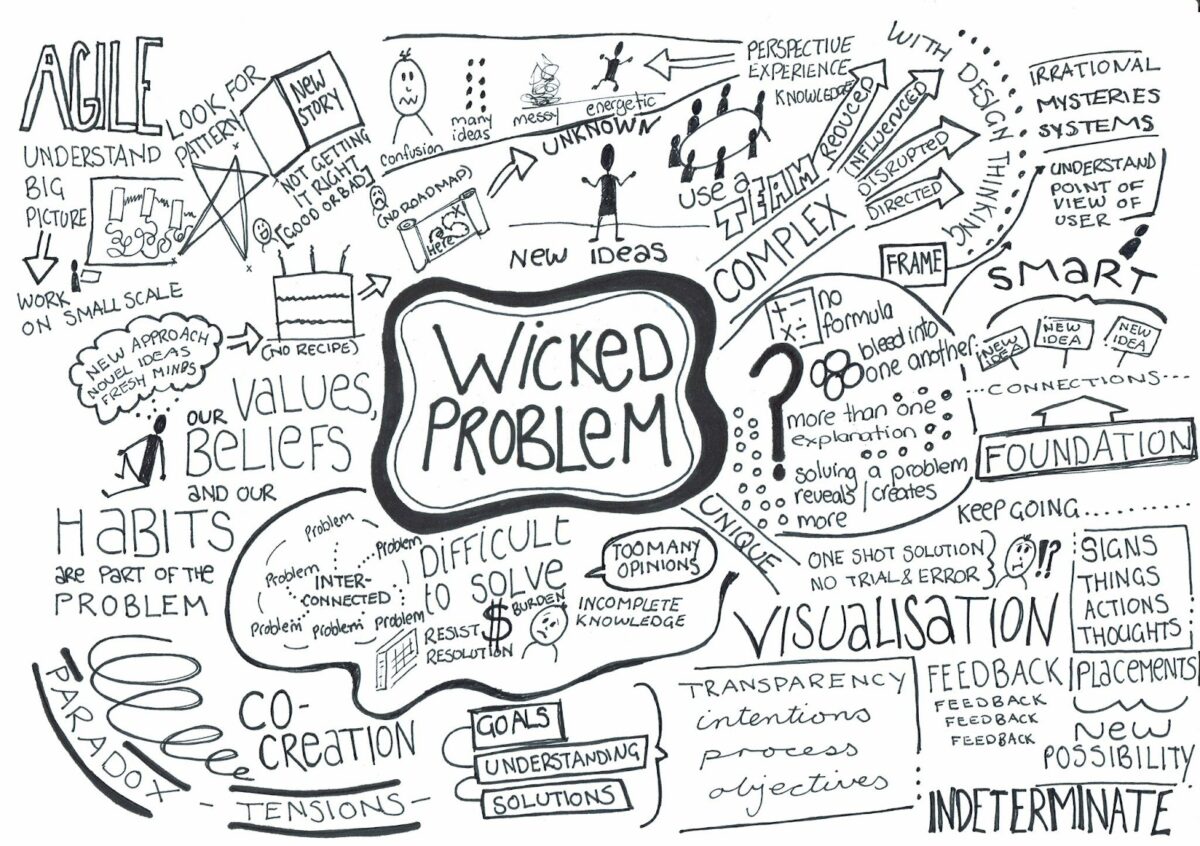 AGILE
UNDERSTAND
BIG
PICTURE
WORK
ON SMALL SCALE
LOOK FOR
PATTERN
NEW
STORY
NOT GETTING
IT RIGHT
[GOOD OR BAD]
confusion
many
ideas
messy
energetic
PERSPECTIVE
EXPERIENCE
KNOWLEDGE
UNKNOWN
(NO ROADMAP)
Here
NEW IDEAS
USE A
TEAM
COMPLEX
REDUCED
INFLUENCED
DISRUPTED
DIRECTED
WITH DESIGN THINKING
IRRATIONAL
MYSTERIES
SYSTEMS
UNDERSTAND
POINT OF
VIEW OF
USER
FRAME
SMART
NEW
IDEA
NEW
IDEA
NEW
IDEA
...CONNECTIONS...
FOUNDATION
KEEP GOING..........
NEW APPROACH
NOVEL IDEAS
FRESH MINDS
(NO RECIPE)
OUR VALUES,
BELIEFS
AND OUR
HABITS
are PART OF THE
PROBLEM
WICKED
PROBLEM
+ −
× ÷
no
formula
?
bleed into
one another
more than one
explanation
solving a problem
reveals/creates
more
UNIQUE
ONE SHOT SOLUTION
NO TRIAL & ERROR
!?
SIGNS
THINGS
ACTIONS
THOUGHTS
Problem
Problem
Problem
INTER-
CONNECTED
Problem
Problem
Problem
DIFFICULT
to SOLVE
TOO MANY
OPINIONS
RESIST
RESOLUTION
$
BURDEN
INCOMPLETE
KNOWLEDGE
VISUALISATION
PARADOX
CO-
CREATION
- TENSIONS -
GOALS
UNDERSTANDING
SOLUTIONS
TRANSPARENCY
intentions
process
objectives
FEEDBACK
FEEDBACK
FEEDBACK
FEEDBACK
PLACEMENTS
NEW
POSSIBILITY
INDETERMINATE